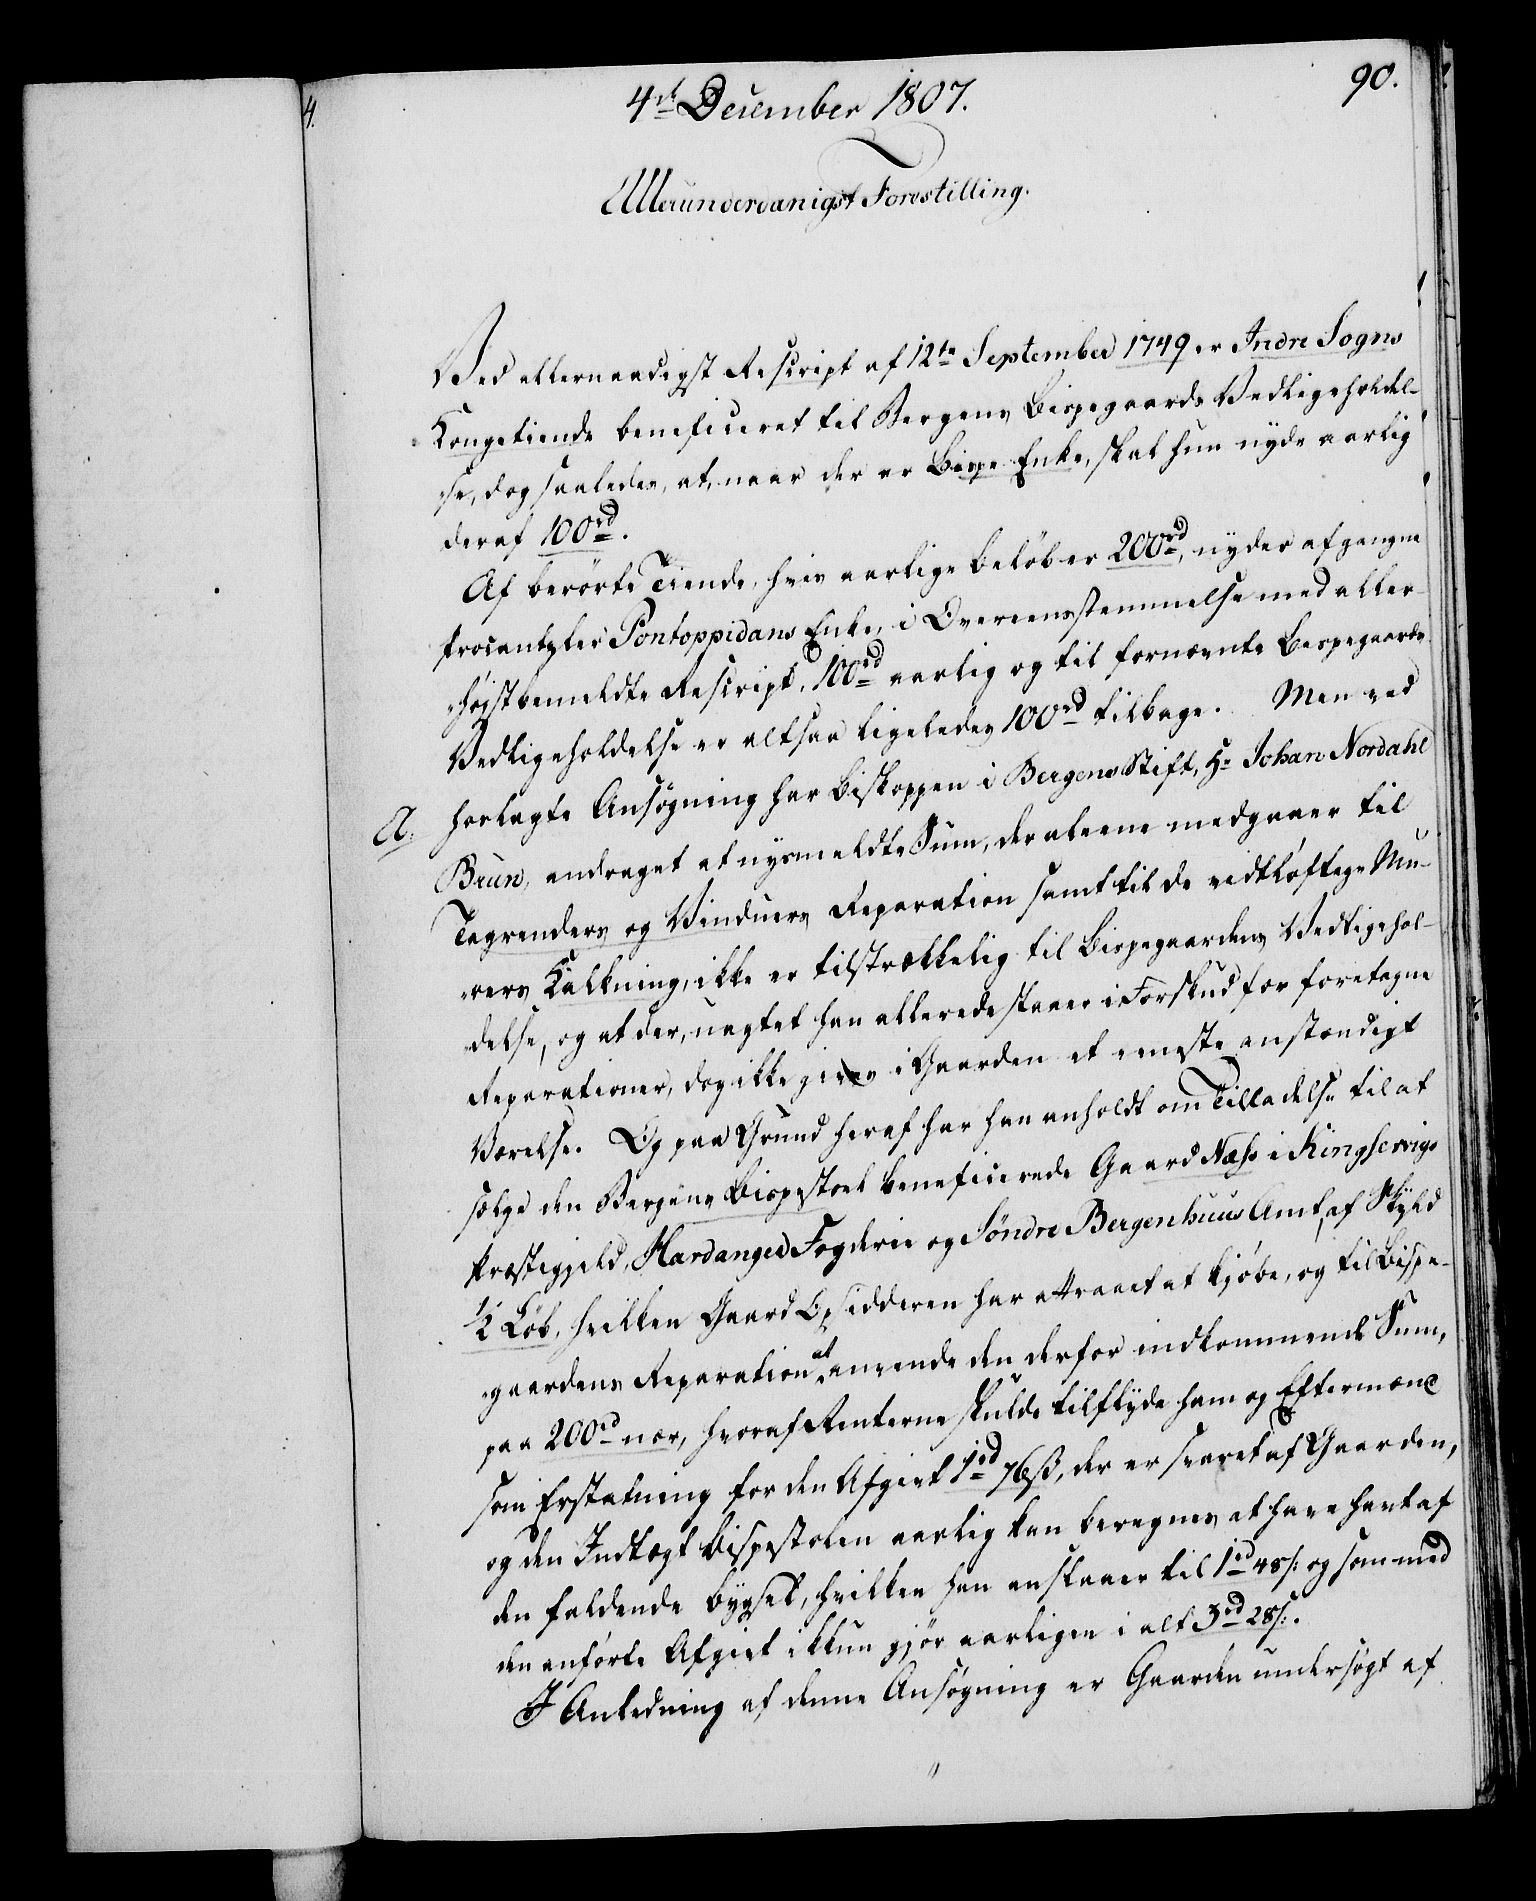 90.
4.
4de December 1807.
Allerunderdanigst Forestilling.
Ved allernaadigst Rescript af 12te September 1749 er Indre Sogns
Kongetiende beneficeret til Bergens Bispegaards Vedligeholdel-
se, dog saaledes, at, naar der er Bispe Enke, skal hun nyde aarlig
deraf 100rd.
Af berørte Tiende, hvis aarlige Beløb er 200rd, nyder afgangne
Procantzler Pontoppidans Enke, i Overeensstemmelse med aller-
høystbemeldte Rescript, 100rd aarlig og til fornævnte Bispegaards
Vedligeholdelse er altsaa ligeledes 100rd tilbage. Men ved
A. hoslagte Ansøgning har Biskoppen i Bergens Stift, Hr Johan Nordahl
Brun, andraget at nysmeldte Sum, der aleene medgaaer til
Tagrenders og Vinduers Reparation samt til de vidtløftige Mu-
rers Kalkning, ikke er tilstrækkelig til Bispegaardens Vedligehol-
delse, og at der, uagtet han allerede staaer i Forskud for foretagne
Reparationer, dog ikke gives i Gaarden et eneste anstændigt
Værelse. Og paa Grund heraf har han anholdt om Tilladelse til at
sælge den Bergens Bispestoel beneficerede Gaard Næss i Kingservigs
Præstegjeld, Hardanger Fogderie og Søndre Bergenhuus Amt, af Skyld
1/2 Løb, hvilken Gaard Opsidderen har attraaet at kjøbe, og til Bispe-
gaardens Reparation at anvende den derfor indkommende Sum,
paa 200rd nær, hvoraf Renterne skulde tilflyde ham og Eftermænd
som Erstatning for den Afgivt 1rd 76ß, der er svaret af Gaarden,
og den Indtægt Bispestolen aarlig kan beregnes at have havt af
den faldende Bygsel, hvilken han anslaaer til 1rd 48ß: og som med
den anførte Afgivt ikkun gjør aarligen i alt 3rd 28ß:.
I Anledning af denne Ansøgning er Gaarden undersøgt af